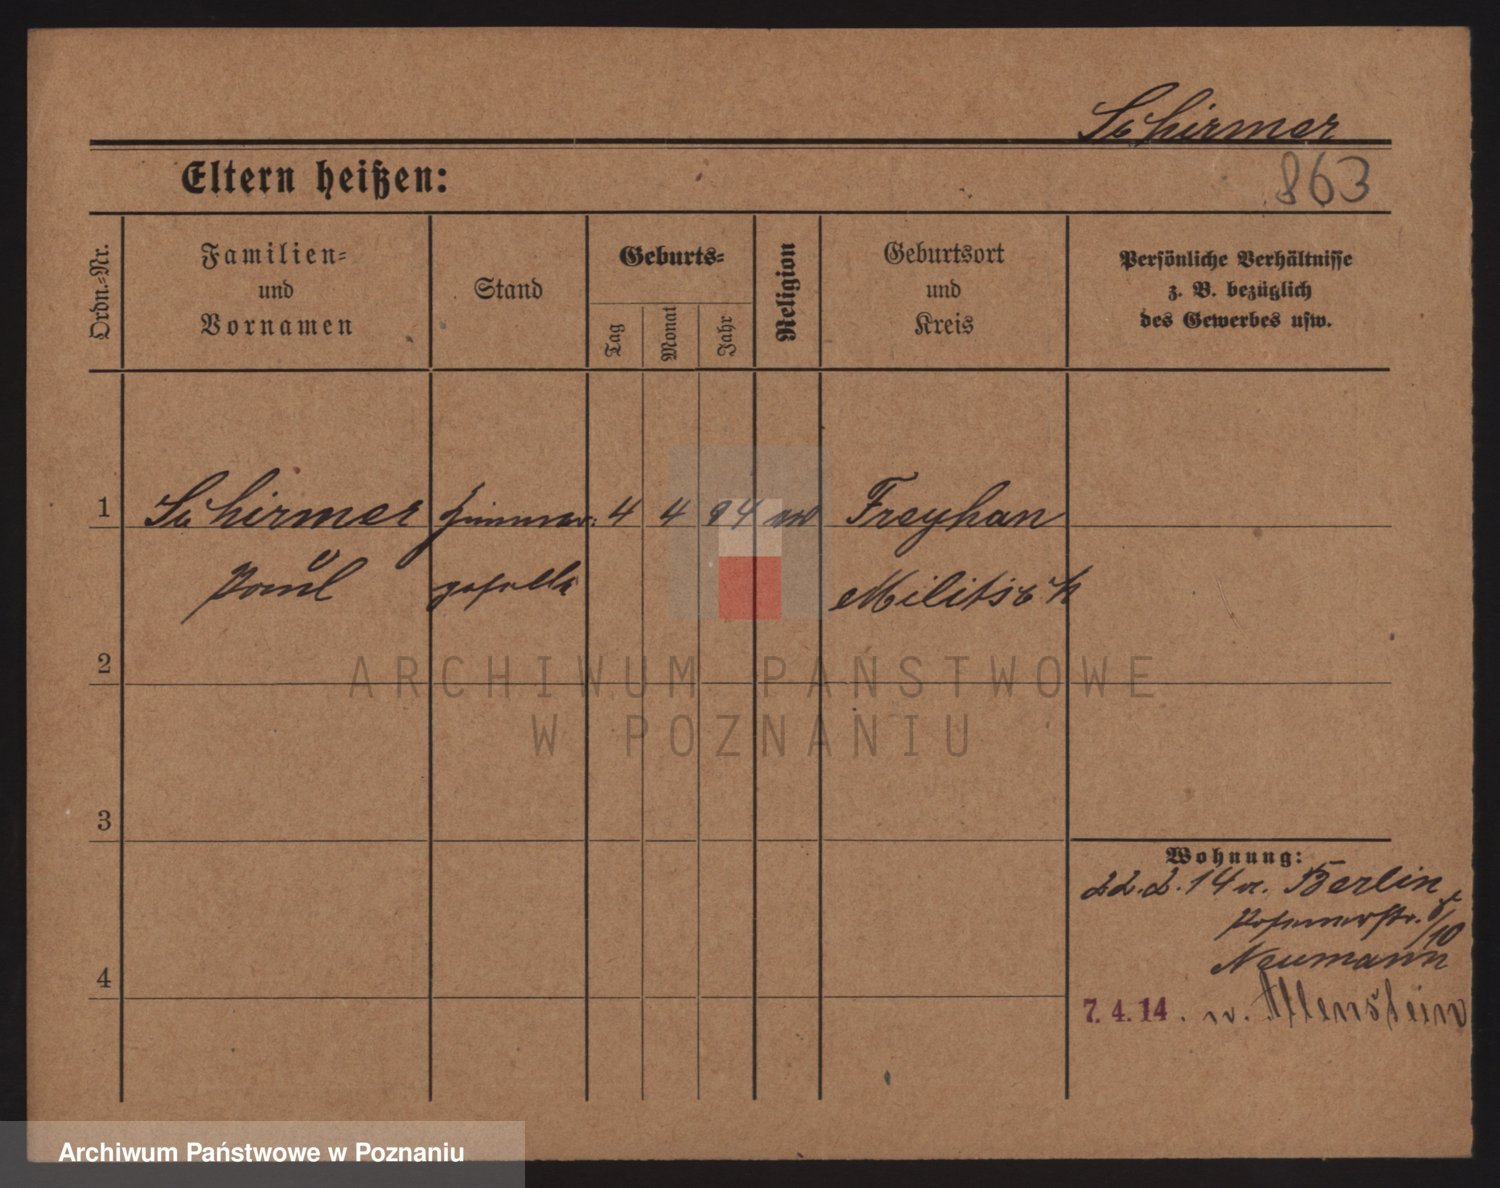 Schirmer
Eltern heißen:
863
Ordn.-Nr.
Familien-
und
Vornamen
Stand
Geburts-
Tag
Monat
Jahr
Religion
Geburtsort
und
Kreis
Persönliche Verhältnisse
z. B. bezüglich
des Gewerbes usw.
1 Schirmer Zimmer- 4 4 94 ev Freyhan
Paul geselle Militsch
2
ARCHIWUM PAŃSTWOWE
W POZNANIU
3
Wohnung:
22.2.14 v. Berlin
Posenerstr. 8/10
Neumann
4
7. 4. 14. n. Allenstein
Archiwum Państwowe w Poznaniu